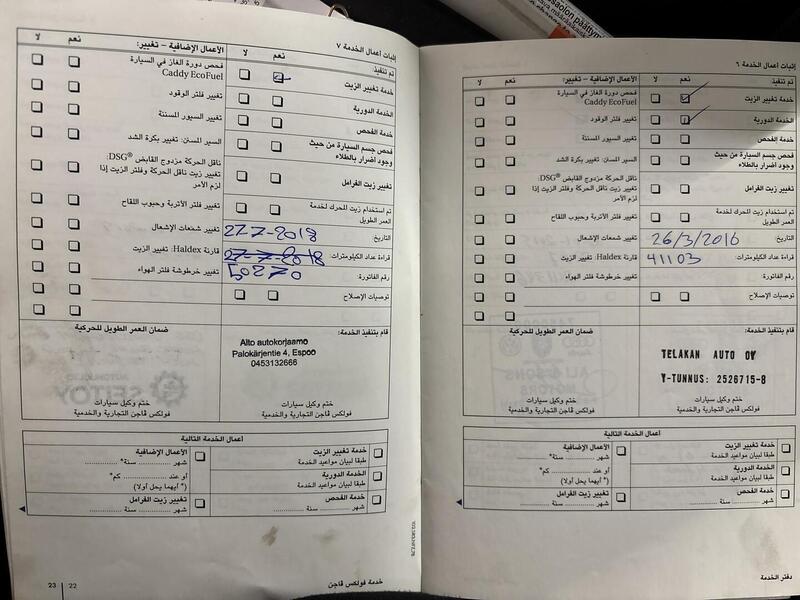 إثباتات أعمال الخدمة ٦
تم تنفيذ:
نعم
لا
الأعمال الإضافية – تغيير:
نعم
لا
خدمة تغيير الزيت
الخدمة الدورية
خدمة الفحص
فحص جسم السيارة من حيث
وجود أضرار بالطلاء
تغيير زيت الفرامل
تم استخدام زيت للمحرك لخدمة
العمر الطويل
التاريخ:
26/3/2016
قراءة عداد الكيلومترات:
41103
رقم الفاتورة:
توصيات الإصلاح
فحص دورة الغاز في السيارة
Caddy EcoFuel
تغيير فلتر الوقود
تغيير السيور المسننة
السير المسنن: تغيير بكرة الشد
ناقل الحركة مزدوج القابض DSG®:
تغيير زيت ناقل الحركة وفلتر الزيت إذا
لزم الأمر
تغيير فلتر الأتربة وحبوب اللقاح
تغيير شمعات الإشعال
قارنة Haldex: تغيير الزيت
تغيير خرطوشة فلتر الهواء
قام بتنفيذ الخدمة:
TELAKAN AUTO OY
Y-TUNNUS: 2526715-8
ختم وكيل سيارات
فولكس ڤاجن التجارية والخدمية
ضمان العمر الطويل للحركية
ختم وكيل سيارات
فولكس ڤاجن التجارية والخدمية
أعمال الخدمة التالية
خدمة تغيير الزيت
طبقا لبيان مواعيد الخدمة
الخدمة الدورية
طبقا لبيان مواعيد الخدمة
خدمة الفحص
شهر ............ سنة ............
الأعمال الإضافية
شهر ............ سنة* ............
أو عند ............ كم*
(* أيهما يحل أولا)
تغيير زيت الفرامل
شهر ............ سنة ............
دفتر الخدمة
إثباتات أعمال الخدمة ٧
تم تنفيذ:
نعم
لا
الأعمال الإضافية – تغيير:
نعم
لا
خدمة تغيير الزيت
الخدمة الدورية
خدمة الفحص
فحص جسم السيارة من حيث
وجود أضرار بالطلاء
تغيير زيت الفرامل
تم استخدام زيت للمحرك لخدمة
العمر الطويل
التاريخ:
27-7-2018
قراءة عداد الكيلومترات:
27-7-2018
رقم الفاتورة:
50270
توصيات الإصلاح
فحص دورة الغاز في السيارة
Caddy EcoFuel
تغيير فلتر الوقود
تغيير السيور المسننة
السير المسنن: تغيير بكرة الشد
ناقل الحركة مزدوج القابض DSG®:
تغيير زيت ناقل الحركة وفلتر الزيت إذا
لزم الأمر
تغيير فلتر الأتربة وحبوب اللقاح
تغيير شمعات الإشعال
قارنة Haldex: تغيير الزيت
تغيير خرطوشة فلتر الهواء
قام بتنفيذ الخدمة:
Alto autokorjaamo
Palokärjentie 4, Espoo
0453132666
ختم وكيل سيارات
فولكس ڤاجن التجارية والخدمية
ضمان العمر الطويل للحركية
ختم وكيل سيارات
فولكس ڤاجن التجارية والخدمية
أعمال الخدمة التالية
خدمة تغيير الزيت
طبقا لبيان مواعيد الخدمة
الخدمة الدورية
طبقا لبيان مواعيد الخدمة
خدمة الفحص
شهر ............ سنة ............
الأعمال الإضافية
شهر ............ سنة* ............
أو عند ............ كم*
(* أيهما يحل أولا)
تغيير زيت الفرامل
شهر ............ سنة ............
خدمة فولكس ڤاجن
22 | 23